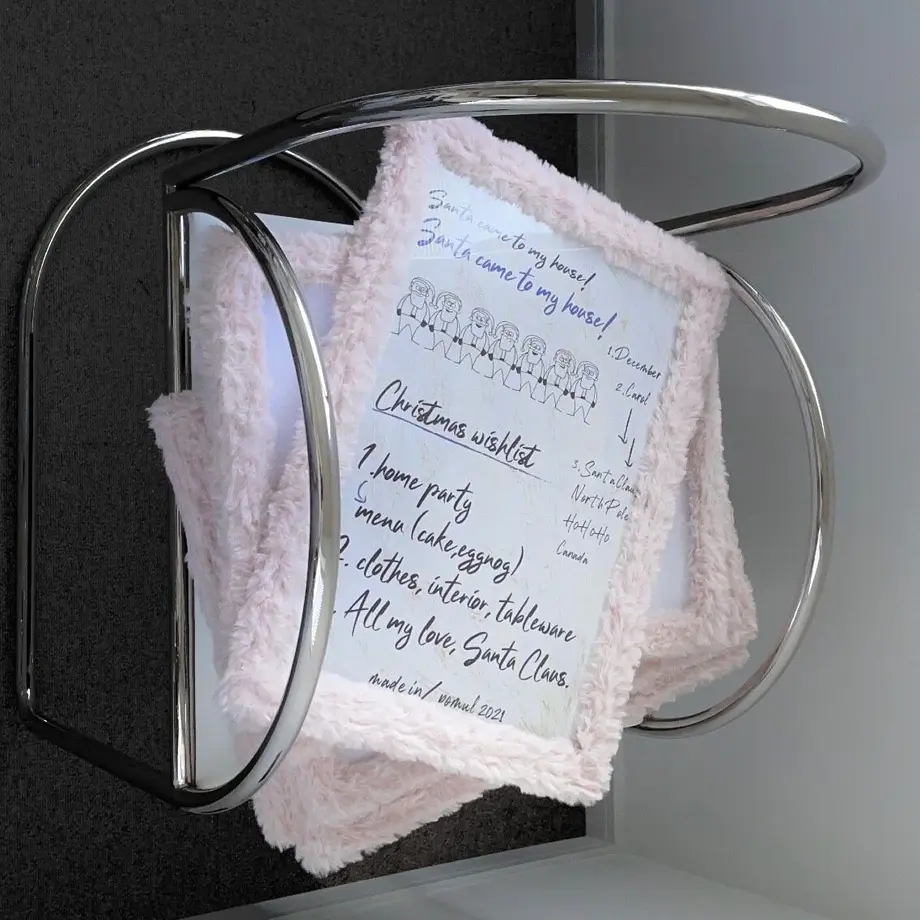 Santa came to my house!
Santa came to my house!
1. December
2. Carol
3. Santa Claus
North Pole
HoHoHo
Canada
Christmas wishlist
1. home party
menu (cake, eggnog)
2. clothes, interior, tableware
. All my love, Santa Claus.
made in/ nomul 2021